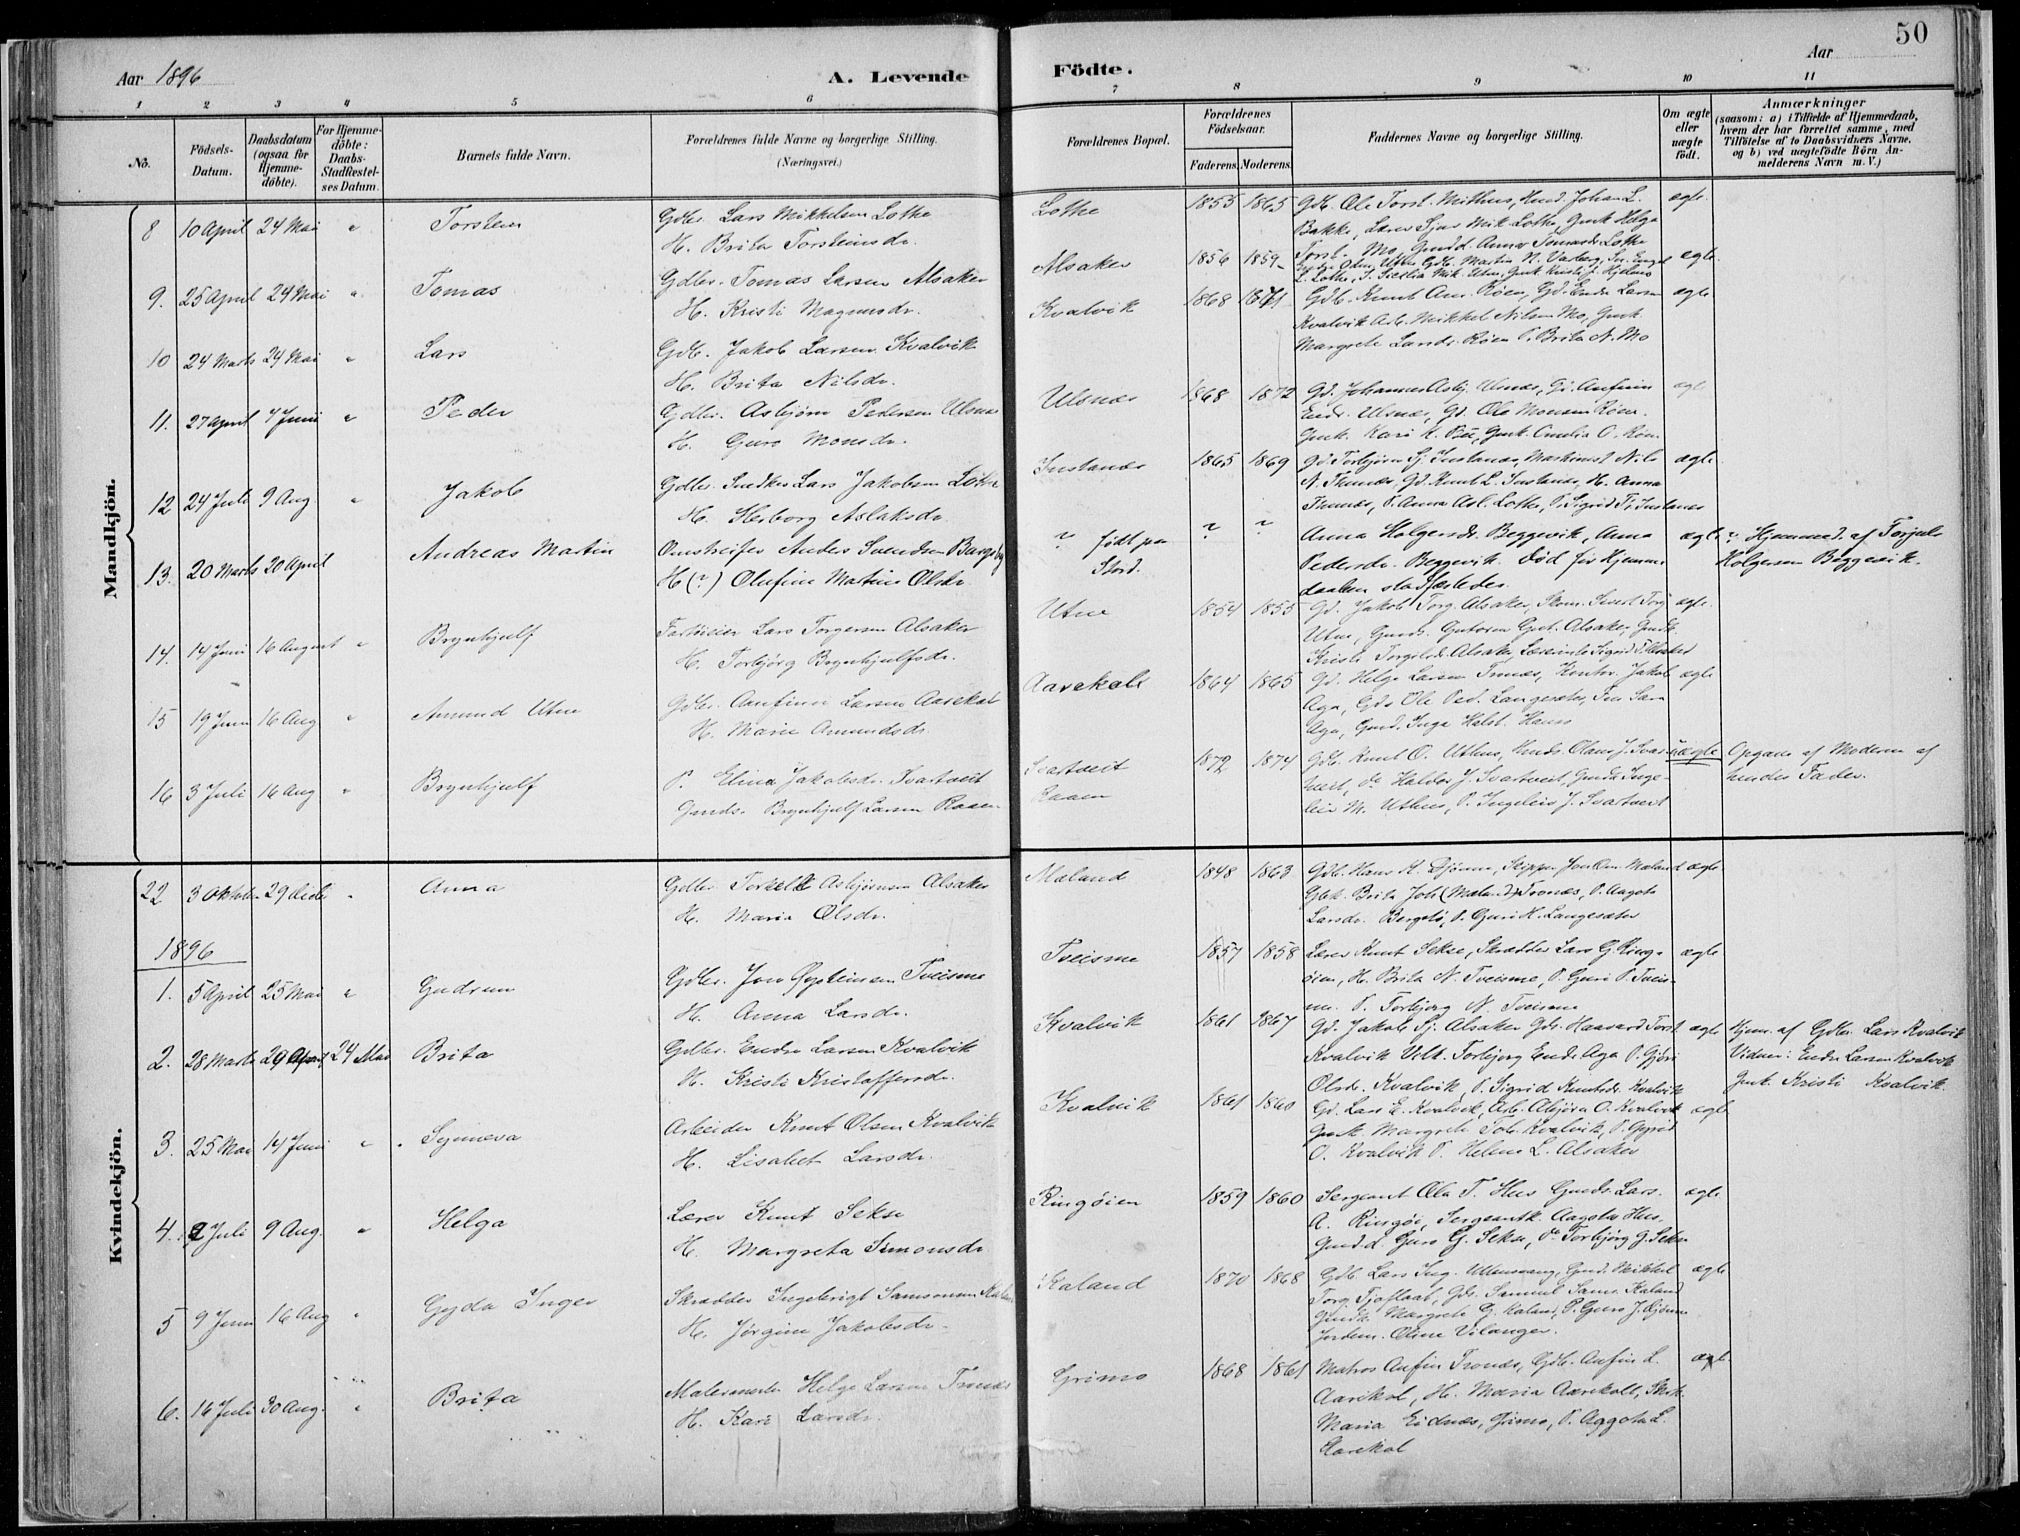 50
Aar 1896
A. Levende
Födte.
Aar
1 2 3 4 5 6 7 8 9 10 11
No.
Födsels-Datum.
Daabsdatum (ogsaa for Hjemme-döbte).
For Hjemme-döbte: Daabs-Stadfæstel-ses Datum.
Barnets fulde Navn.
Forældrenes fulde Navne og borgerlige Stilling.
(Næringsvei.)
Forældrenes Bopæl.
Forældrenes Födselsaar.
Faderens. Moderens.
Faddernes Navne og borgerlige Stilling.
Om ægte eller uægte födt.
Anmærkninger
(saasom: a) i Tilfælde af Hjemmedaab,
hvem der har forrettet samme, med
Tilföielse af to Daabsvidners Navne,
og b) ved uægtefödte Börn An-
melderens Navn m. V.)
Mandkjön.
8 10 April 24 Mai " Torstein
Gdbr. Lars Mikkelsen Lothe
H. Brita Torsteinsdr.
Lothe 1855 1865
Gdb. Ole Torst. Mithus, Johan L.
Bakke, Lærer Sjur Mik Lothe, Gmk Helga
Torst. Mo, Anna Lothe
ægte.
9. 25 April 24 Mai " Tomas
Gdbr. Tomas Larsen Alsaker
H. Kristi Magnusdr.
Alsaker 1856 1859
ægte.
10 24 Marts 24 Mai " Lars
Gdb. Jakob Larsen Kvalvik
H. Brita Nilsdr.
Kvalvik 1868 1871
Gdb. Knut Am. Röen, Gd. Endre Larsen
Kvalvik Arb. Mikkel Nilsen Mo, Gmk
Margrete Larsdr. Röen P. Brita N. Mo
ægte
11. 27 April 7 Juni " Peder
Gdbr. Asbjörn Pedersen Ulsnæs
H. Guro Monsdr.
Ulsnæs 1868 1872
Gd. Johannes Asbj. Ulsnæs, Gd. Anfinn
Endr. Ulsnæs, Gd. Ole Monsen Röen
Gmk. Kari K. Gmk. O. Röen
ægte
12 24 Juli 9 Aug. " Jakob
Gdbr. Snedker Lars Jakobsen Lothe
H. Herborg Aslaksdr.
Instanæs 1865 1869
Gd. Torbjörn Sj. Instanæs, Maskinist Nils
N. Tronæs, Gd. Knut L. Instanæs, H. Anna
Tronæs, P. Anna Asl. Lothe, P. Sigrid T. Instanæs
ægte
13. 20 Marts 20 April Andreas Martin
Omstreifer Anders Svendsen
H (?) Olufine Matine Olsdr.
? födt paa
Stord.
? ?
Anna Holgersdr. Beggevik, Anna
Pedersdr. Beggevik. Död för Hjemme-
daaben stadfæstedes.
ægte
? Hjemmed. af Torjuls
Holgersen Beggevik.
14. 14 Juni 16 August " Brynhjulf
Lars Torgersen Alsaker
H. Torbjörg Brynhjulfsdr.
Utne 1854 1855
Gd. Jakob Torg. Alsaker, Skom. Sivert Torg.
Utne, Alsaker,
Kristi Torgilsdr. Alsaker, Sigrid
ægte.
15 19 Juni 16 Aug " Amund Utne
Gdbr. Anfinn Larsen Aarekol
H. Marie Amundsdr.
Aarekol 1864 1865
Gd. Helge Larsen Tronæs, Kontor. Jakob
Aga, Gds Ole Ped. Langesæter,
Aga, Gmd. Inga Halst. Haus
ægte
16 3 Juli 16 Aug " Brynhjulf
P. Elina Jakobsdr. Svartveit
Gmds. Brynhjulf Larsen Raaen
Svartveit
Raaen
1872 1874
Gdb. Knut O. Uthus, Gmds. Olav J. Svart-
veit, Do Haldor J. Svartveit, Gmdk Inge-
leiv M. Uthus, P. Ingeleiv J. Svartveit
uægte
Opgave af Moderen af
hendes Fader.
Kvindekjön.
22 3 Oktober 29 Dcbr " Anna
Gdbr Torkell Asbjörnsen Alsaker
H. Maria Olsdr.
Maland 1848 1863
Gdb. Hans K. Djönne, Skipper Jon Maland
Gbk. Brita Joh (Maland) Tronæs, P. Aagot
Larsdr. P. Guri H. Langesæter
ægte.
1896
1. 5 April 25 Mai " Gudrun
Gdbr. Jon Öysteinsen Tveisme
H. Anna Larsdr.
Tveisme 1857 1858
Lærer Knut Sekse, Skrædder Lars G. Ring-
öien, H. Brita N. Tveisme, P. Guri P. Tveis-
me. P. Torbjorg N. Tveisme
ægte
2. 28 Marts 29 April 24 Mai Brita
Gdbr. Endre Larsen Kvalvik
H. Kristi Kristoffersdr.
Kvalvik 1861 1867
Gd. Jakob Sj. Alsaker Gds. Haavard Torst
Kvalvik Torbjorg Endr. Aga P. Gjöri
Olsdr. Kvalvik P. Sigrid Knutsdr. Kvalvik
ægte
Hjem. af Gdbr. Lars Kvalvik
Vidner: Endre Larsen Kvalvik
Gmk. Kristi Kvalvik
3. 25 Mai 14 Juni " Synneva
Arbeider Knut Olsen Kvalvik
H. Lisabet Larsdr.
Kvalvik 1861 1860
Gd. Lars E. Kvalvik, Arb. Asbjörn O. Kvalvik
Gmk Margrete Joh. Kvalvik, P. Gyrid
O. Kvalvik P. Helena L. Alsaker
ægte
4. 2 Juli 9 Aug. " Helga
Lærer Knut Sekse
H. Margreta Simonsdr
Ringöien 1859 1860
Sergeant Ola T. Hus Gmds. Lars
A. Ringöi, Sergeantk. Aagota Hus,
Gmd.d. Guro G. Sekse, Do Torbjörg G. Sekse
ægte
5 9 Juni 16 Aug " Gyda Inger
Skrædder Ingebrigt Samsonsen Kaland
H. Jörgine Jakobsdr.
Kaland 1870 1868
Gdb. Lars Ing. Ullensvang, Gmd. Mikkel
Torg. Tjoflaat, Gds. Samuel Sams. Kaland
Gmdk. Margrete G. Kaland, P. Guro J. Djönne
Jordem. Oline Vilanger.
ægte
6. 16 Juli 30 Aug. " Brita
Malermester Helge Larsen Tronæs
H. Kari Larsdr.
Grimo 1868 1861
Matros Anfin Tronæs, Gdb. Anfin L.
Aarekol, H. Maria Aarekoll,
Maria Eidnæs, Grimo, P. Aggota L.
Aarekol
ægte